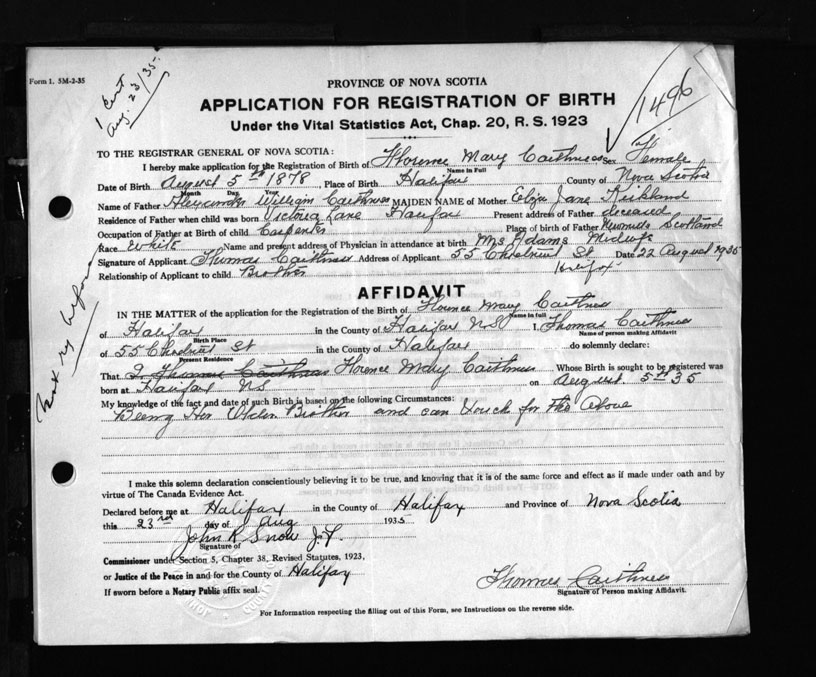 Form 1. 5M-2-35
1 Cert
Aug. 23/35.
1496
PROVINCE OF NOVA SCOTIA
APPLICATION FOR REGISTRATION OF BIRTH
Under the Vital Statistics Act, Chap. 20, R. S. 1923
TO THE REGISTRAR GENERAL OF NOVA SCOTIA:
I hereby make application for the Registration of Birth of Florence Mary Caithness Sex Female
Name in Full
Date of Birth August 5th 1878, Place of Birth Halifax County of Nova Scotia
Month Day Year
Name of Father Alexander William Caithness MAIDEN NAME of Mother Eliza Jane
Residence of Father when child was born Victoria Lane Halifax Present address of Father deceased
Occupation of Father at Birth of child Carpenter Place of birth of Father Scotland
Race White Name and present address of Physician in attendance at birth Mrs Adams Midwife
Signature of Applicant Thomas Caithness Address of Applicant 55 St Date 22 August 1935
Halifax
Relationship of Applicant to child Brother
AFFIDAVIT
IN THE MATTER of the application for the Registration of the Birth of Florence Mary Caithness
Name in full
of Halifax in the County of Halifax NS I, Thomas Caithness
Birth Place Name of person making Affidavit
of 55 St in the County of Halifax do solemnly declare:
Present Residence
That I Thomas Caithness Florence Mary Caithness Whose Birth is sought to be registered was
born at Halifax NS on August 5th 35
My knowledge of the fact and date of such Birth is based on the following Circumstances:
Being Her Older Brother and can Vouch for the Above
I make this solemn declaration conscientiously believing it to be true, and knowing that it is of the same force and effect as if made under oath and by
virtue of The Canada Evidence Act.
Declared before me at Halifax in the County of Halifax and Province of Nova Scotia
this 23rd day of Aug 1935
John R Snow J.P.
Signature of
Commissioner under Section 5, Chapter 38, Revised Statutes, 1923,
or Justice of the Peace in and for the County of Halifax
If sworn before a Notary Public affix seal.
Thomas Caithness
Signature of Person making Affidavit.
For Information respecting the filling out of this Form, see Instructions on the reverse side.